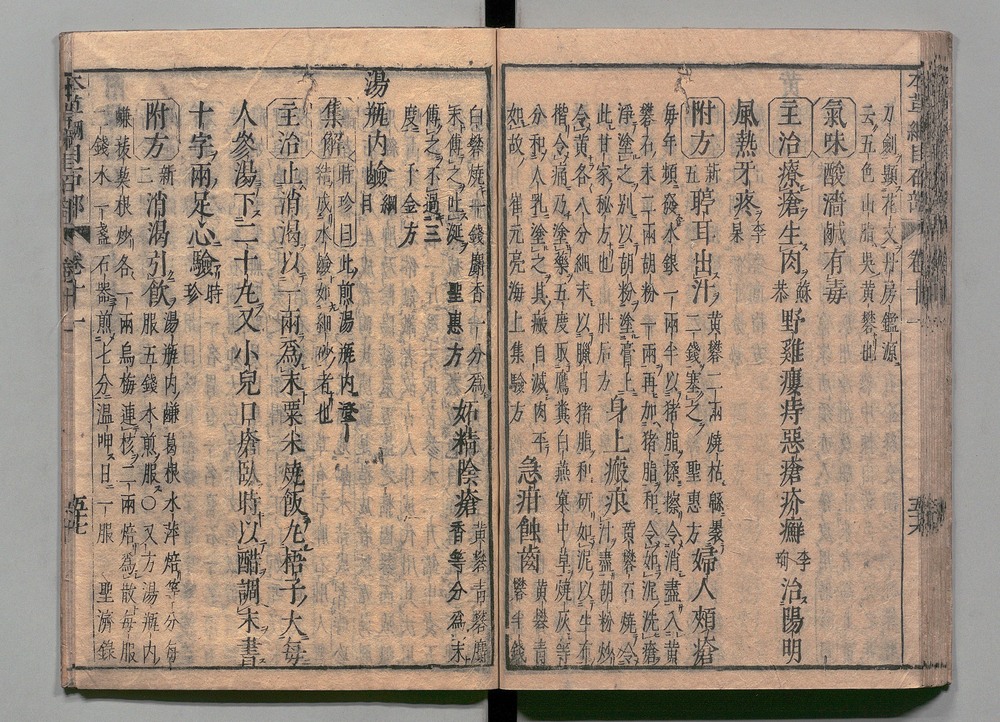 刀劍顯花文丹房鑑源
云五色山脂吳黃礬也
氣味酸濇鹹有毒
主治療瘡生肉蘇恭野雞瘻痔惡瘡疥癬李珣治陽明
風熱牙疼李杲
附方新五聤耳出汁黃礬二兩燒枯緜裹二錢塞之聖惠方婦人頰瘡
每年頻發水銀一兩半以猪脂揉擦令消盡入黃
礬石末二兩胡粉一兩再加猪脂和令如泥洗瘡
淨塗之別以胡粉塗膏上
此甘家秘方也肘后方身上瘢痕黃礬石燒令汁盡胡粉炒
令黃各八分細末以臘月猪脂和研如泥以生布
揩令痛乃塗藥五度取鷹糞白燕窠中草燒灰等
分和人乳塗之其瘢自滅肉平
如故崔元亮海上集驗方急疳蝕齒黃礬青礬半錢
白礬燒一錢麝香一分爲
末傅之吐涎聖惠方妬精陰瘡黃礬青礬麝香等分爲末
傅之不過三
度千金方
湯瓶內鹼綱目
集解時珍曰此煎湯瓶內澄結成水鹼如細砂者也
主治止消渴以一兩爲末粟米燒飯丸梧子大每
人參湯下二十九又小兒口瘡臥時以醋調末書
十字兩足心驗時珍
附方新二消渴引飲湯瓶內鹼葛根水萍焙等分每服五錢水煎服〇又方湯瓶內
鹼菝葜根炒各一兩烏梅連核二兩焙爲散每服
二錢水一盞石器煎七分溫呷日一服聖濟錄
本草綱目石部
卷十一
五十六
五十七